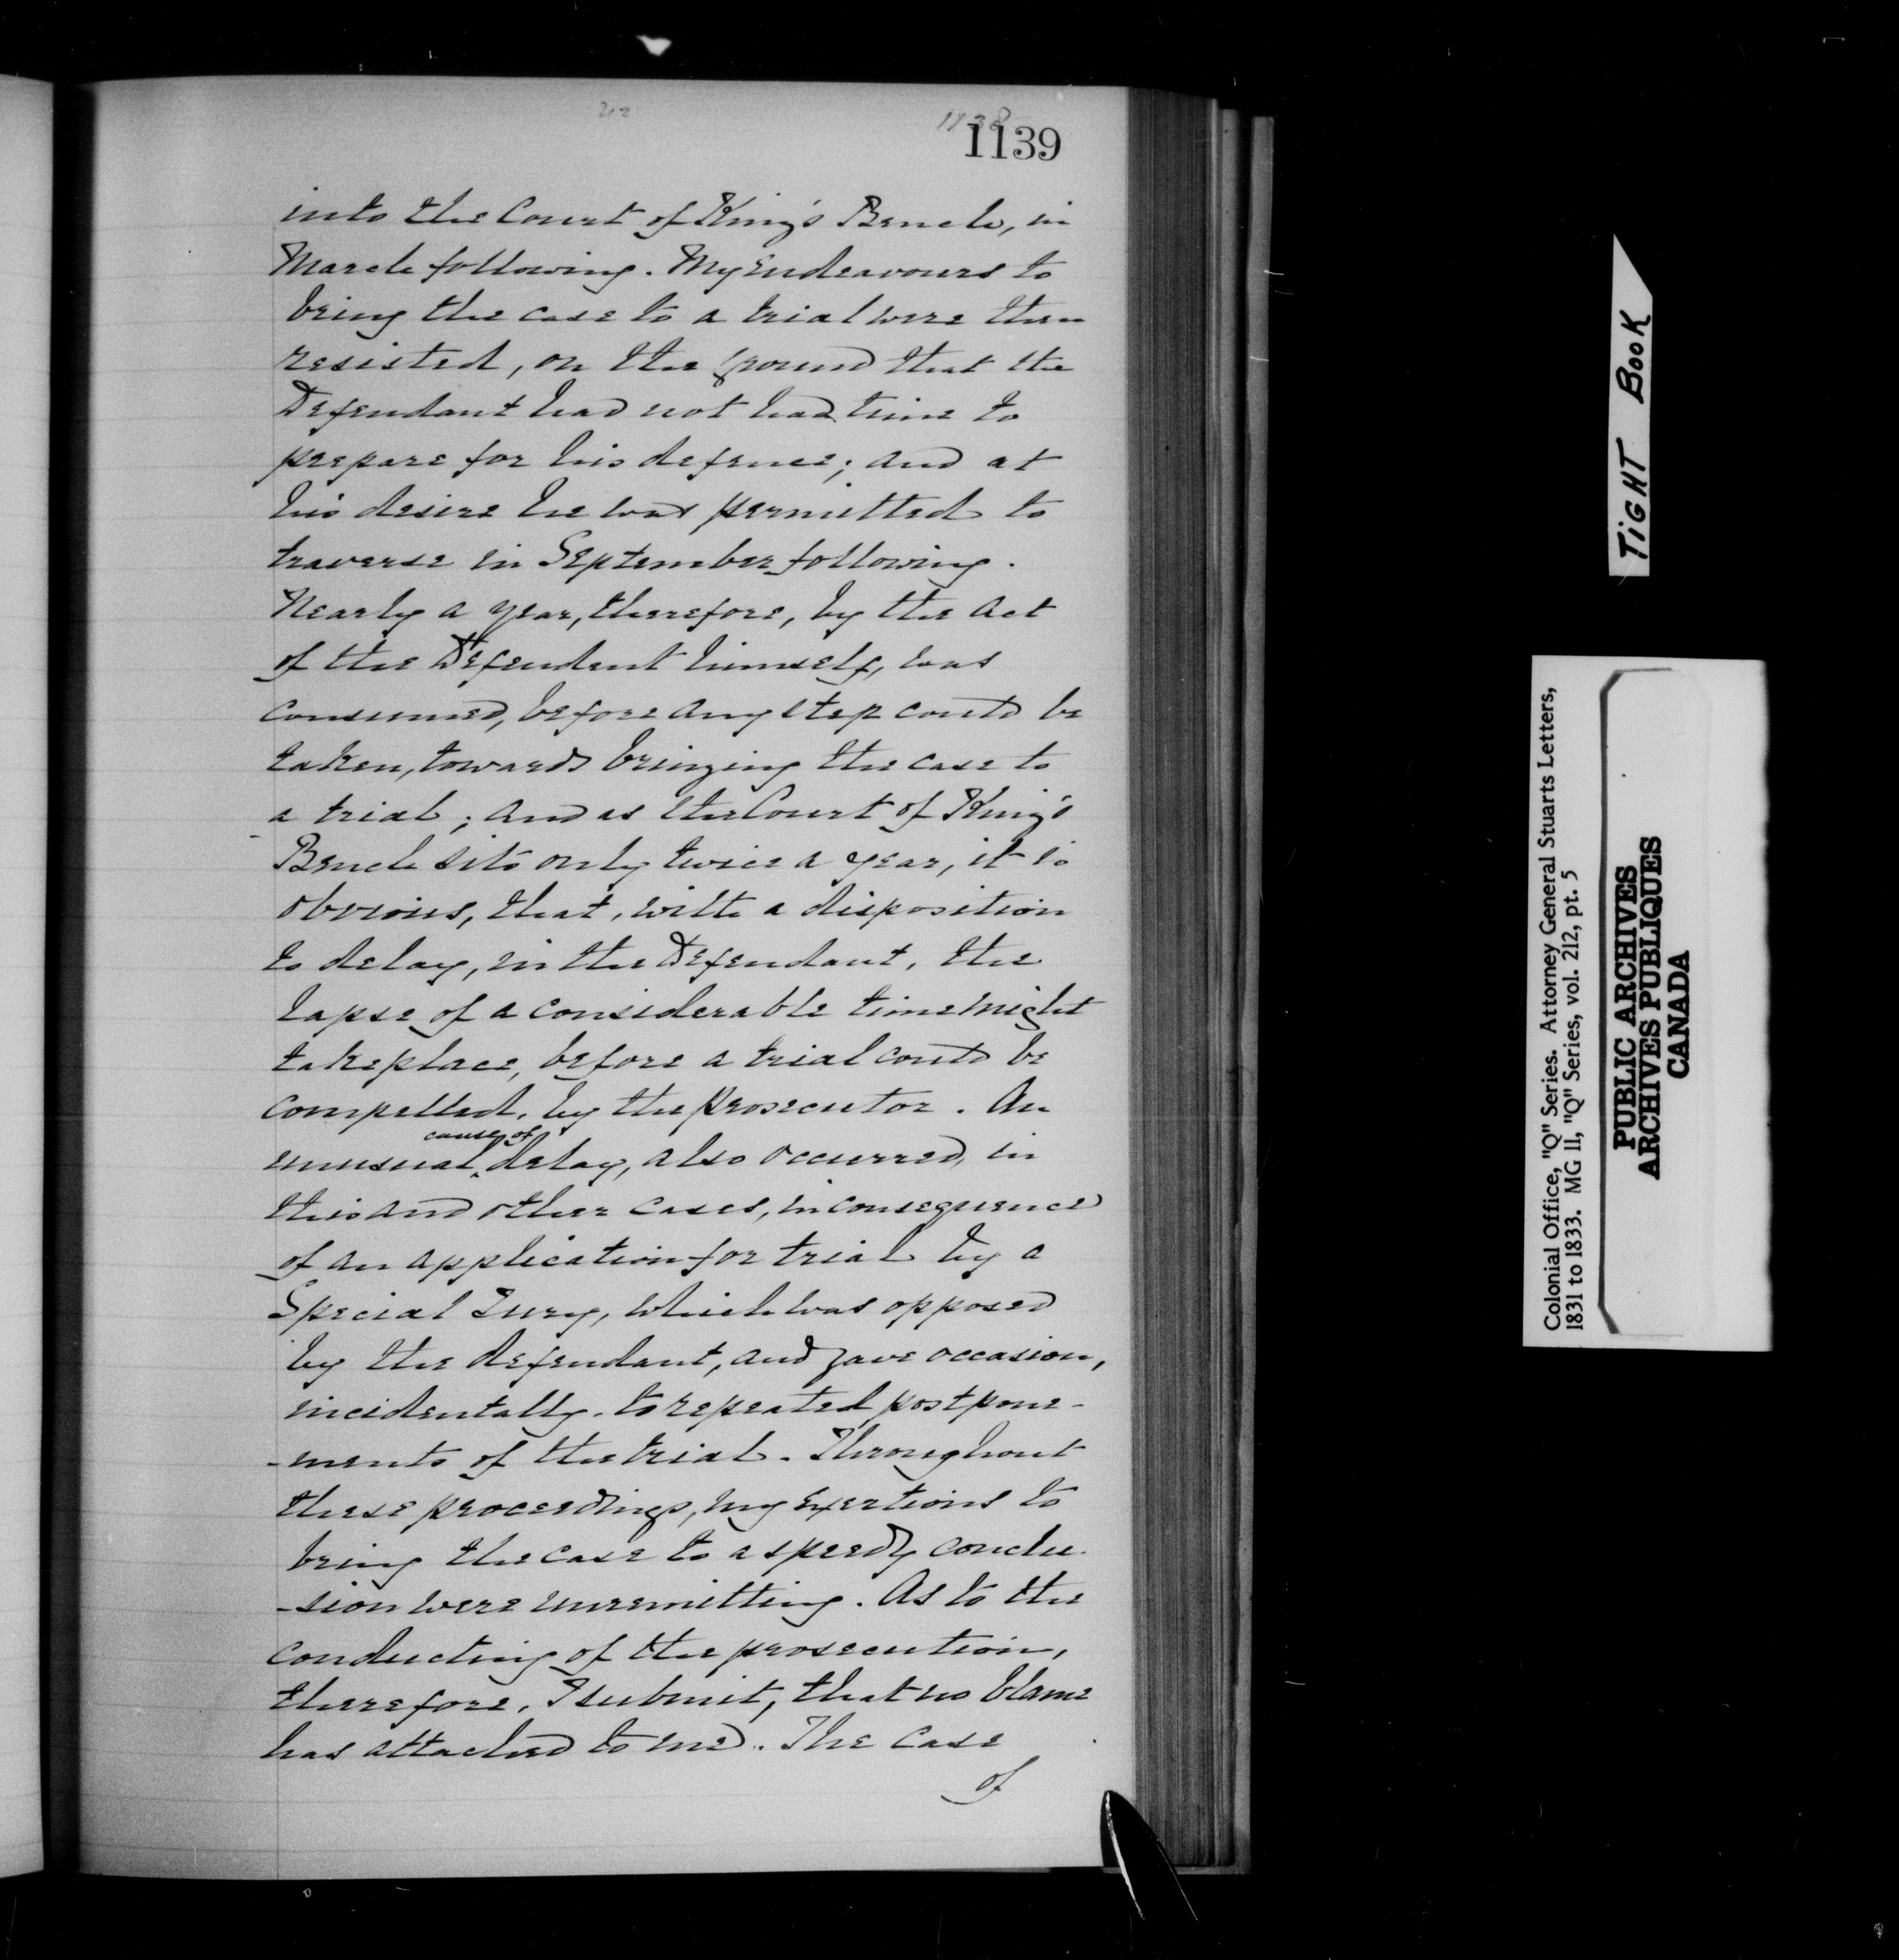 212
1138
1139
into the Court of King's Bench, in
March following. My Endeavours to
bring the case to a trial were then
resisted, on the ground that the
Defendant had not had time to
prepare for his defence; and at
his desire he was permitted to
traverse in September following.
Nearly a year, therefore, by the act
of the Defendant himself, was
consumed, before any step could be
taken, towards bringing the case to
a trial; and as the Court of King's
Bench sits only twice a year, it is
obvious, that, with a disposition
to delay, in the Defendant, the
lapse of a considerable time might
take place, before a trial could be
compelled, by the prosecutor. An
unusual cause of delay, also occurred, in
this and other cases, in consequence
of an application for trial by a
Special Jury, which was opposed
by the defendant, and gave occasion,
incidentally, to repeated postpone-
-ments of the trial. Throughout
these proceedings, my exertions to
bring the case to a speedy conclu-
-sion were unremitting. As to the
conducting of the prosecution,
therefore, I submit, that no blame
has attached to me. The case
of
TIGHT BOOK
Colonial Office, "Q" Series. Attorney General Stuarts Letters,
1831 to 1833. MG 11, "Q" Series, vol. 212, pt. 5
PUBLIC ARCHIVES
ARCHIVES PUBLIQUES
CANADA